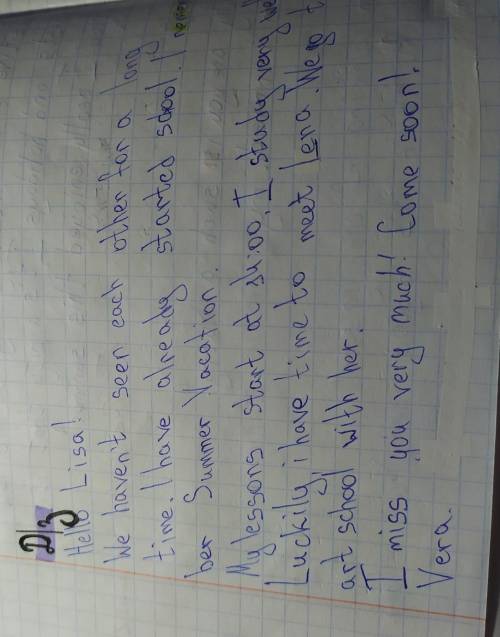 Д/з
Hello Lisa!
We haven't seen each other for a long
time. I have already started school. I
ber Summer Vacation.
My lessons start at 14:00. I study very
Luckily, i have time to meet Lena. We go
art school with her.
I miss you very much! Come soon!
Vera.